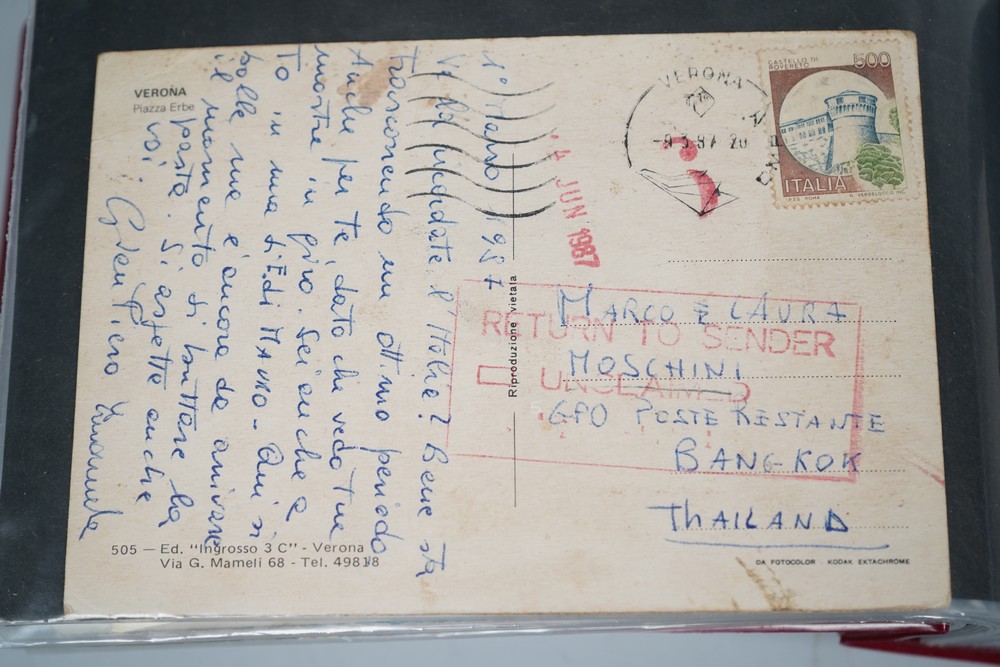 VERONA
Piazza Erbe
1° Marzo 1987
Vi ricordate l'Italia? Bene sta
trascorrendo un ottimo periodo
Anche per te, dato che vedo tue
mostre in giro. Sei anche a
TO in una di Edi MAVRO - Qui si
bolle ma è ancora da arrivare
il momento di buttare la
pasta. Si aspetta anche
voi.
GianPiero Emanuela
505 — Ed. "Ingrosso 3 C" - Verona
Via G. Mameli 68 - Tel. 49818
Riproduzione vietata
VERONA
-9.3.87 20
4 JUN 1987
CASTELLO DI
ROVERETO
500
ITALIA
RETURN TO SENDER
UNCLAIMED
MARCO E LAURA
MOSCHINI
GPO POSTE RESTANTE
BANGKOK
THAILAND
DA FOTOCOLOR - KODAK EKTACHROME